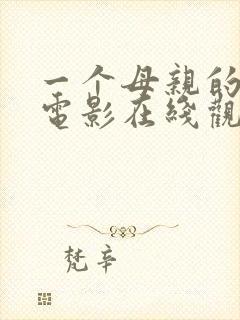 一个母亲的
電影在綫觀
梵辛